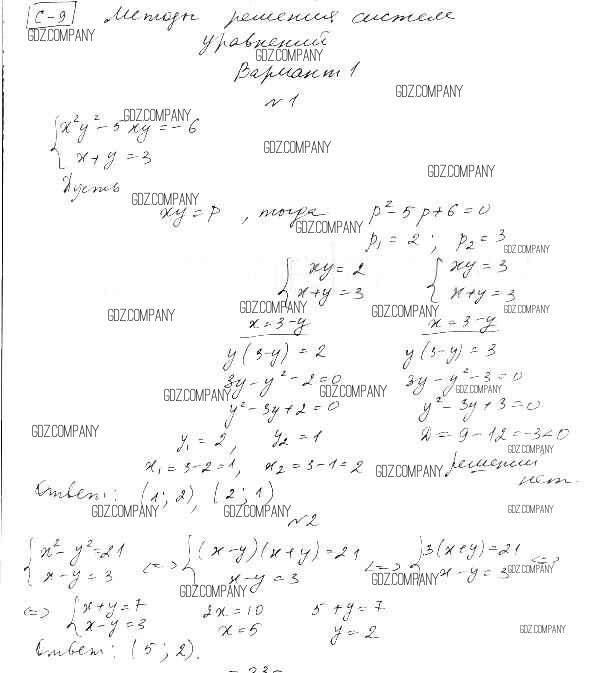 С-9 Методы решения систем
GDZ.COMPANY
уравнений
GDZ.COMPANY
Вариант 1
GDZ.COMPANY
№1
GDZ.COMPANY
x²y² - 5xy = -6
GDZ.COMPANY
x + y = 3
GDZ.COMPANY
Пусть
GDZ.COMPANY
xy = p, тогда p² - 5p + 6 = 0
GDZ.COMPANY
p₁ = 2; p₂ = 3
GDZ.COMPANY
xy = 2 xy = 3
x + y = 3 x + y = 3
GDZ.COMPANY GDZ.COMPANY GDZ.COMPANY GDZ.COMPANY
x = 3 - y x = 3 - y
y(3 - y) = 2 y(3 - y) = 3
3y - y² - 2 = 0 3y - y² - 3 = 0
GDZ.COMPANY GDZ.COMPANY GDZ.COMPANY
y² - 3y + 2 = 0 y² - 3y + 3 = 0
GDZ.COMPANY
y₁ = 2, y₂ = 1 D = 9 - 12 = -3 < 0
GDZ.COMPANY
x₁ = 3 - 2 = 1, x₂ = 3 - 1 = 2 решений
GDZ.COMPANY
нет.
Ответ: (1; 2), (2; 1)
GDZ.COMPANY GDZ.COMPANY GDZ.COMPANY
№2
x² - y² = 21 <=> (x - y)(x + y) = 21 <=> 3(x + y) = 21 <=>
x - y = 3 x - y = 3 x - y = 3
GDZ.COMPANY GDZ.COMPANY GDZ.COMPANY
<=> x + y = 7 2x = 10 5 + y = 7
x - y = 3 x = 5 y = 2
GDZ.COMPANY
Ответ: (5; 2).
GDZ.COMPANY
- 23 -